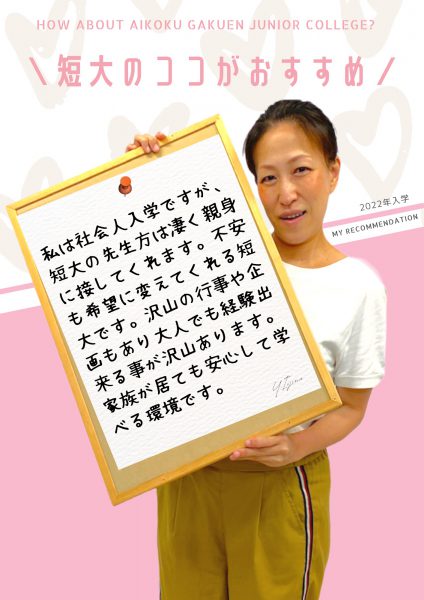 HOW ABOUT AIKOKU GAKUEN JUNIOR COLLEGE?
\短大のココがおすすめ/
2022年入学
MY RECOMMENDATION
私は社会人入学ですが、
短大の先生方は凄く親身
に接してくれます。不安
も希望に変えてくれる短
大です。沢山の行事や企
画もあり大人でも経験出
来る事が沢山あります。
家族が居ても安心して学
べる環境です。